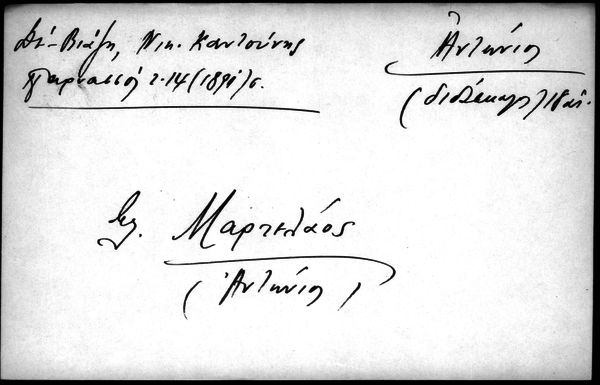 Δὲ-Βιάζη, Νικ. Καντούνης
Παρνασσός τ. 14 (1891) σ.
Ἀντώνιος
(διδάσκαλ.) 18 αἰ.
βλ. Μαρτελάος
(Ἀντώνιος)